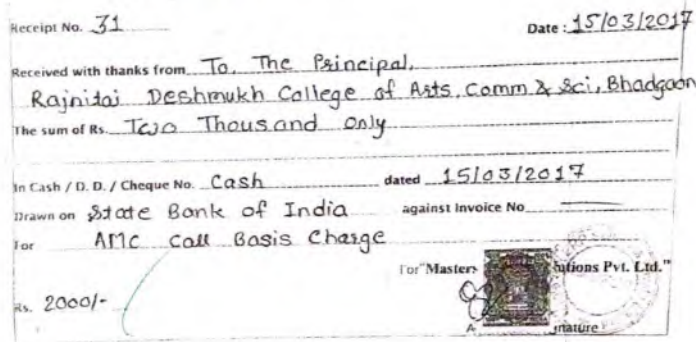 Receipt No. 31 Date : 15/03/2017
Received with thanks from To, The Principal,
Rajnitai Deshmukh College of Arts, Comm & Sci, Bhadgaon
The sum of Rs. Two Thousand Only
In Cash / D. D. / Cheque No. Cash dated 15/03/2017
Drawn on State Bank of India against Invoice No
For AMC Call Basis Charge
For "Master utions Pvt. Ltd."
Rs. 2000/-
A nature